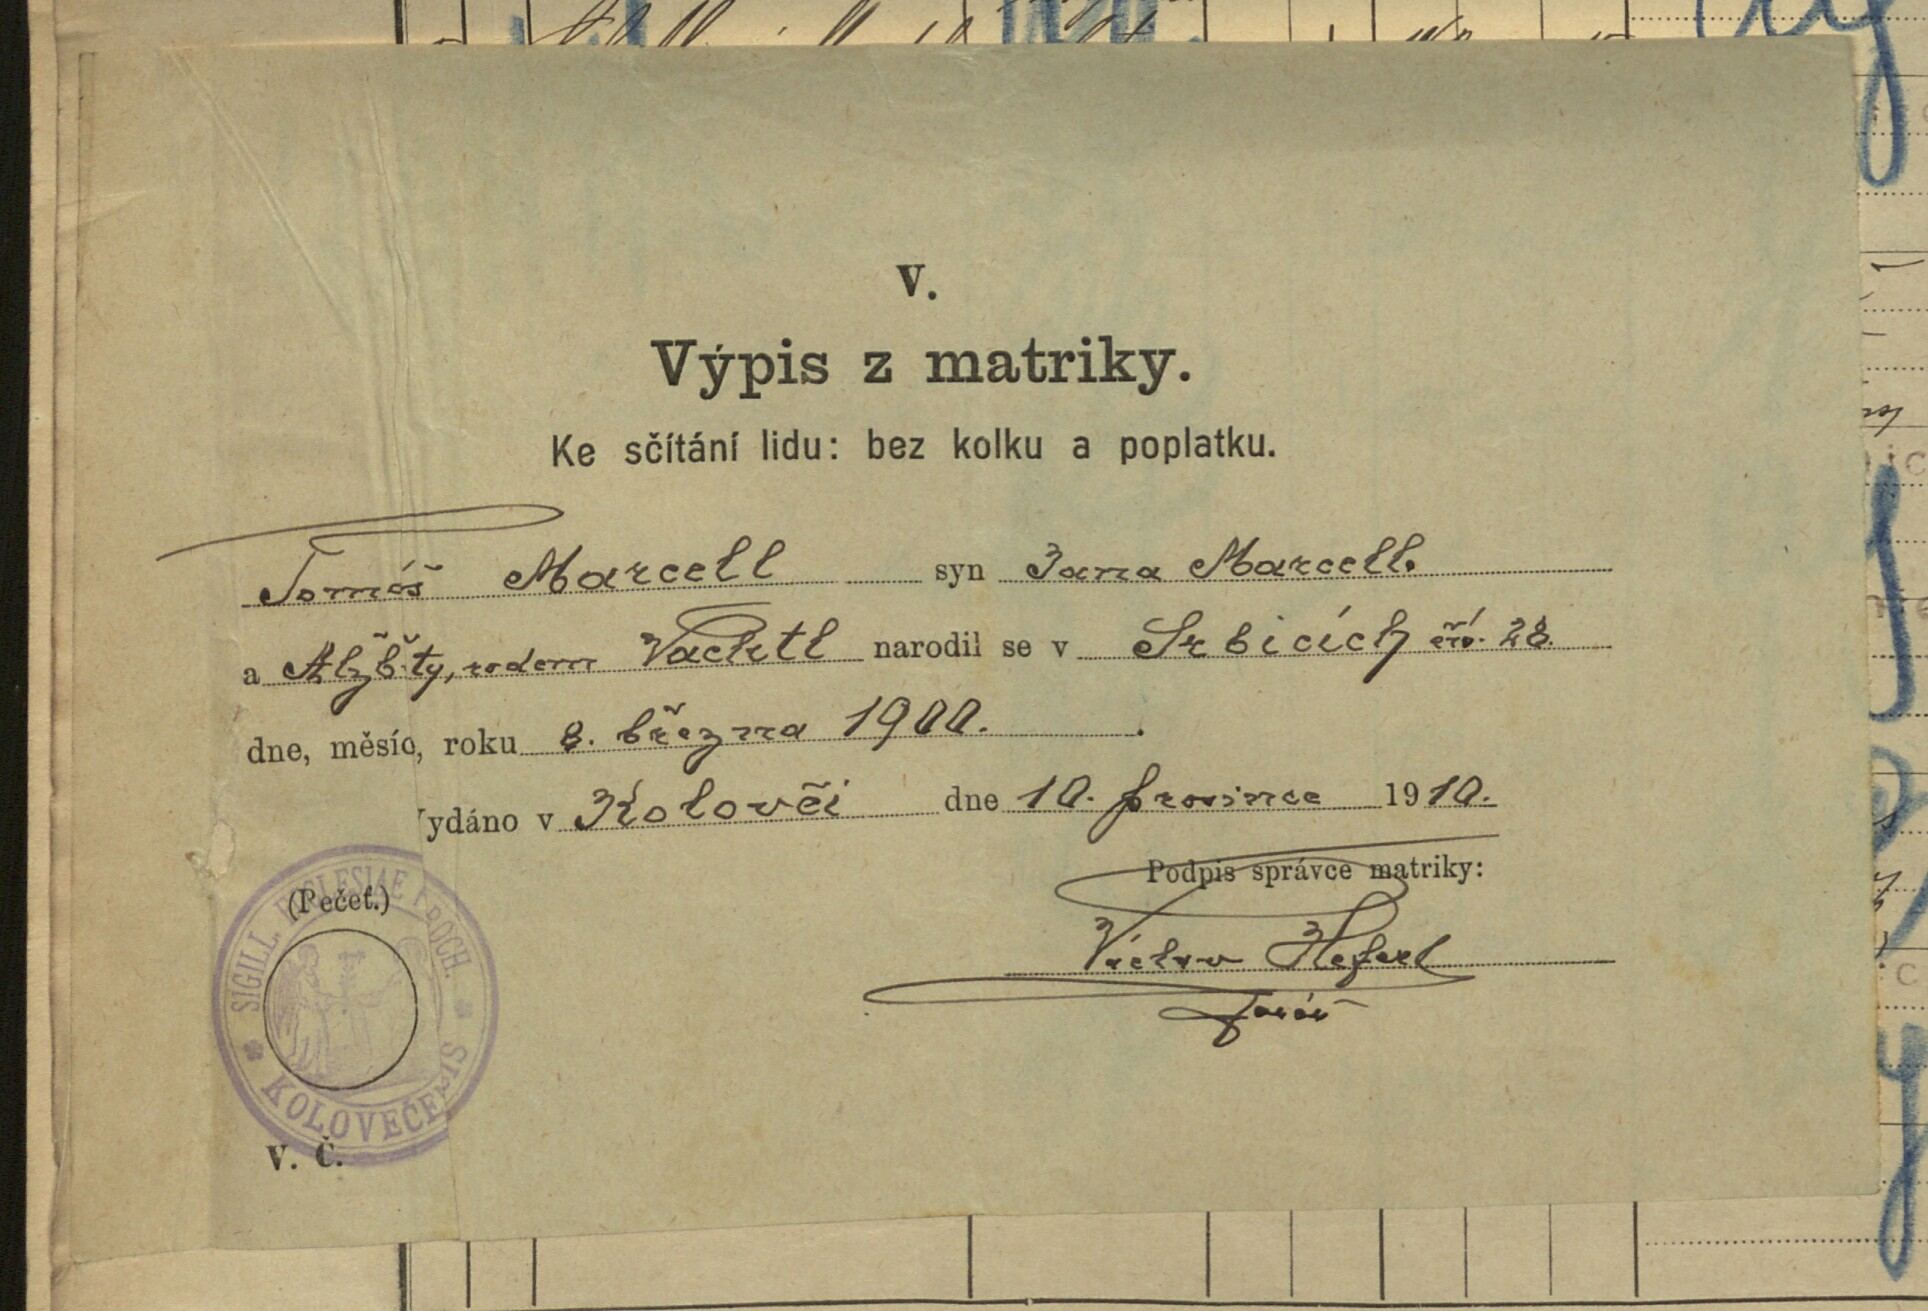 V.
Výpis z matriky.
Ke sčítání lidu: bez kolku a poplatku.
Tomáš Marcell syn Jana Marcell.
a Alžběty, rodem Vachtl narodil se v Srbicích čís. 28.
dne, měsíc, roku 8. března 1900.
ydáno v Kolovči dne 10. prosince 1910.
Podpis správce matriky:
(Pečeť.)
Václav
farář
SIGILL. ECCLESIAE PAROCH. KOLOVEČENSIS
V. Č.